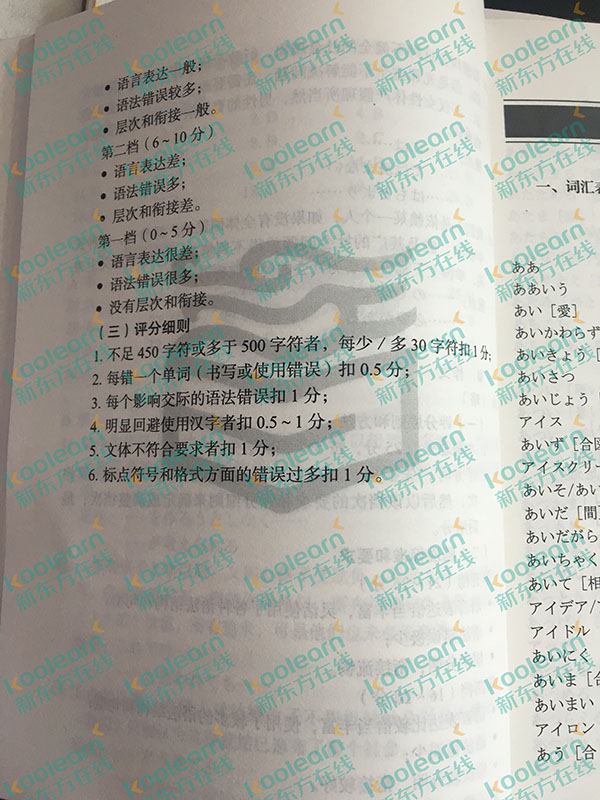 • 语言表达一般；
• 语法错误较多；
• 层次和衔接一般。
第二档（6~10分）
• 语言表达差；
• 语法错误多；
• 层次和衔接差。
第一档（0~5分）
• 语言表达很差；
• 语法错误很多；
• 没有层次和衔接。
（三）评分细则
1. 不足450字符或多于500字符者，每少/多30字符扣1分；
2. 每错一个单词（书写或使用错误）扣0.5分；
3. 每个影响交际的语法错误扣1分；
4. 明显回避使用汉字者扣0.5~1分；
5. 文体不符合要求者扣1分；
6. 标点符号和格式方面的错误过多扣1分。
一、词汇
ああ
ああいう
あい［愛］
あいかわらず
あいきょう
あいさつ
あいじょう
アイス
あいず［合図
アイスクリー
あいそ/あい
あいだ［間］
あいだがら
あいちゃく
あいて［相
アイデア/ア
アイドル
あいにく
あいま［合
あいまい
アイロン
あう［合
Koolearn
新东方在线